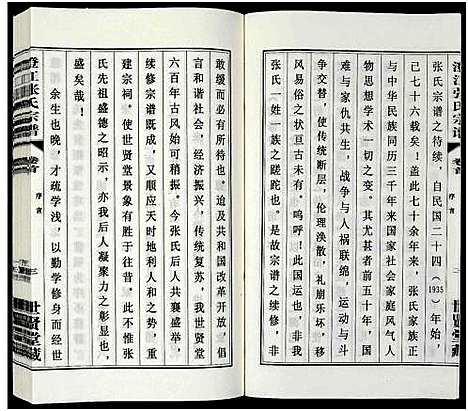 澄江張氏宗譜
卷首
序言
二
世賢堂藏
张氏宗谱之待续，自民国二十四（1935）年始，
已七十六载矣！盖此七十余年来，张氏家族正
与中华民族同历三千年来国家社会家庭风气人
物思想学术之大变。尤其甚者前五十年，国
难与家仇共生，战争与人祸联绵，运动与斗
争交替，使传统断层，伦理涣散，礼崩乐坏，世
风易俗之状亘古未有。呜呼！此厄于国于民于
张氏一姓一族之蹉跎也。是故宗谱之续修，非
敢缓而必有所待也。迨及共和国改革开放，倡
言和谐社会，经济振兴，传统复苏，我世贤堂
六百年古风始可稍天日。今张氏后人共襄盛举，
续修宗谱既成，又顺应天时地利人和之势，重
建宗祠。使世贤堂景象有胜于往昔。此不惟张
氏先祖盛德之昭示，亦我后人凝聚力之彰显也，
盛矣哉！
余生也晚，才疏学浅，以勤学修身而经世
澄江張氏宗譜
卷首
序言
三
世賢堂藏